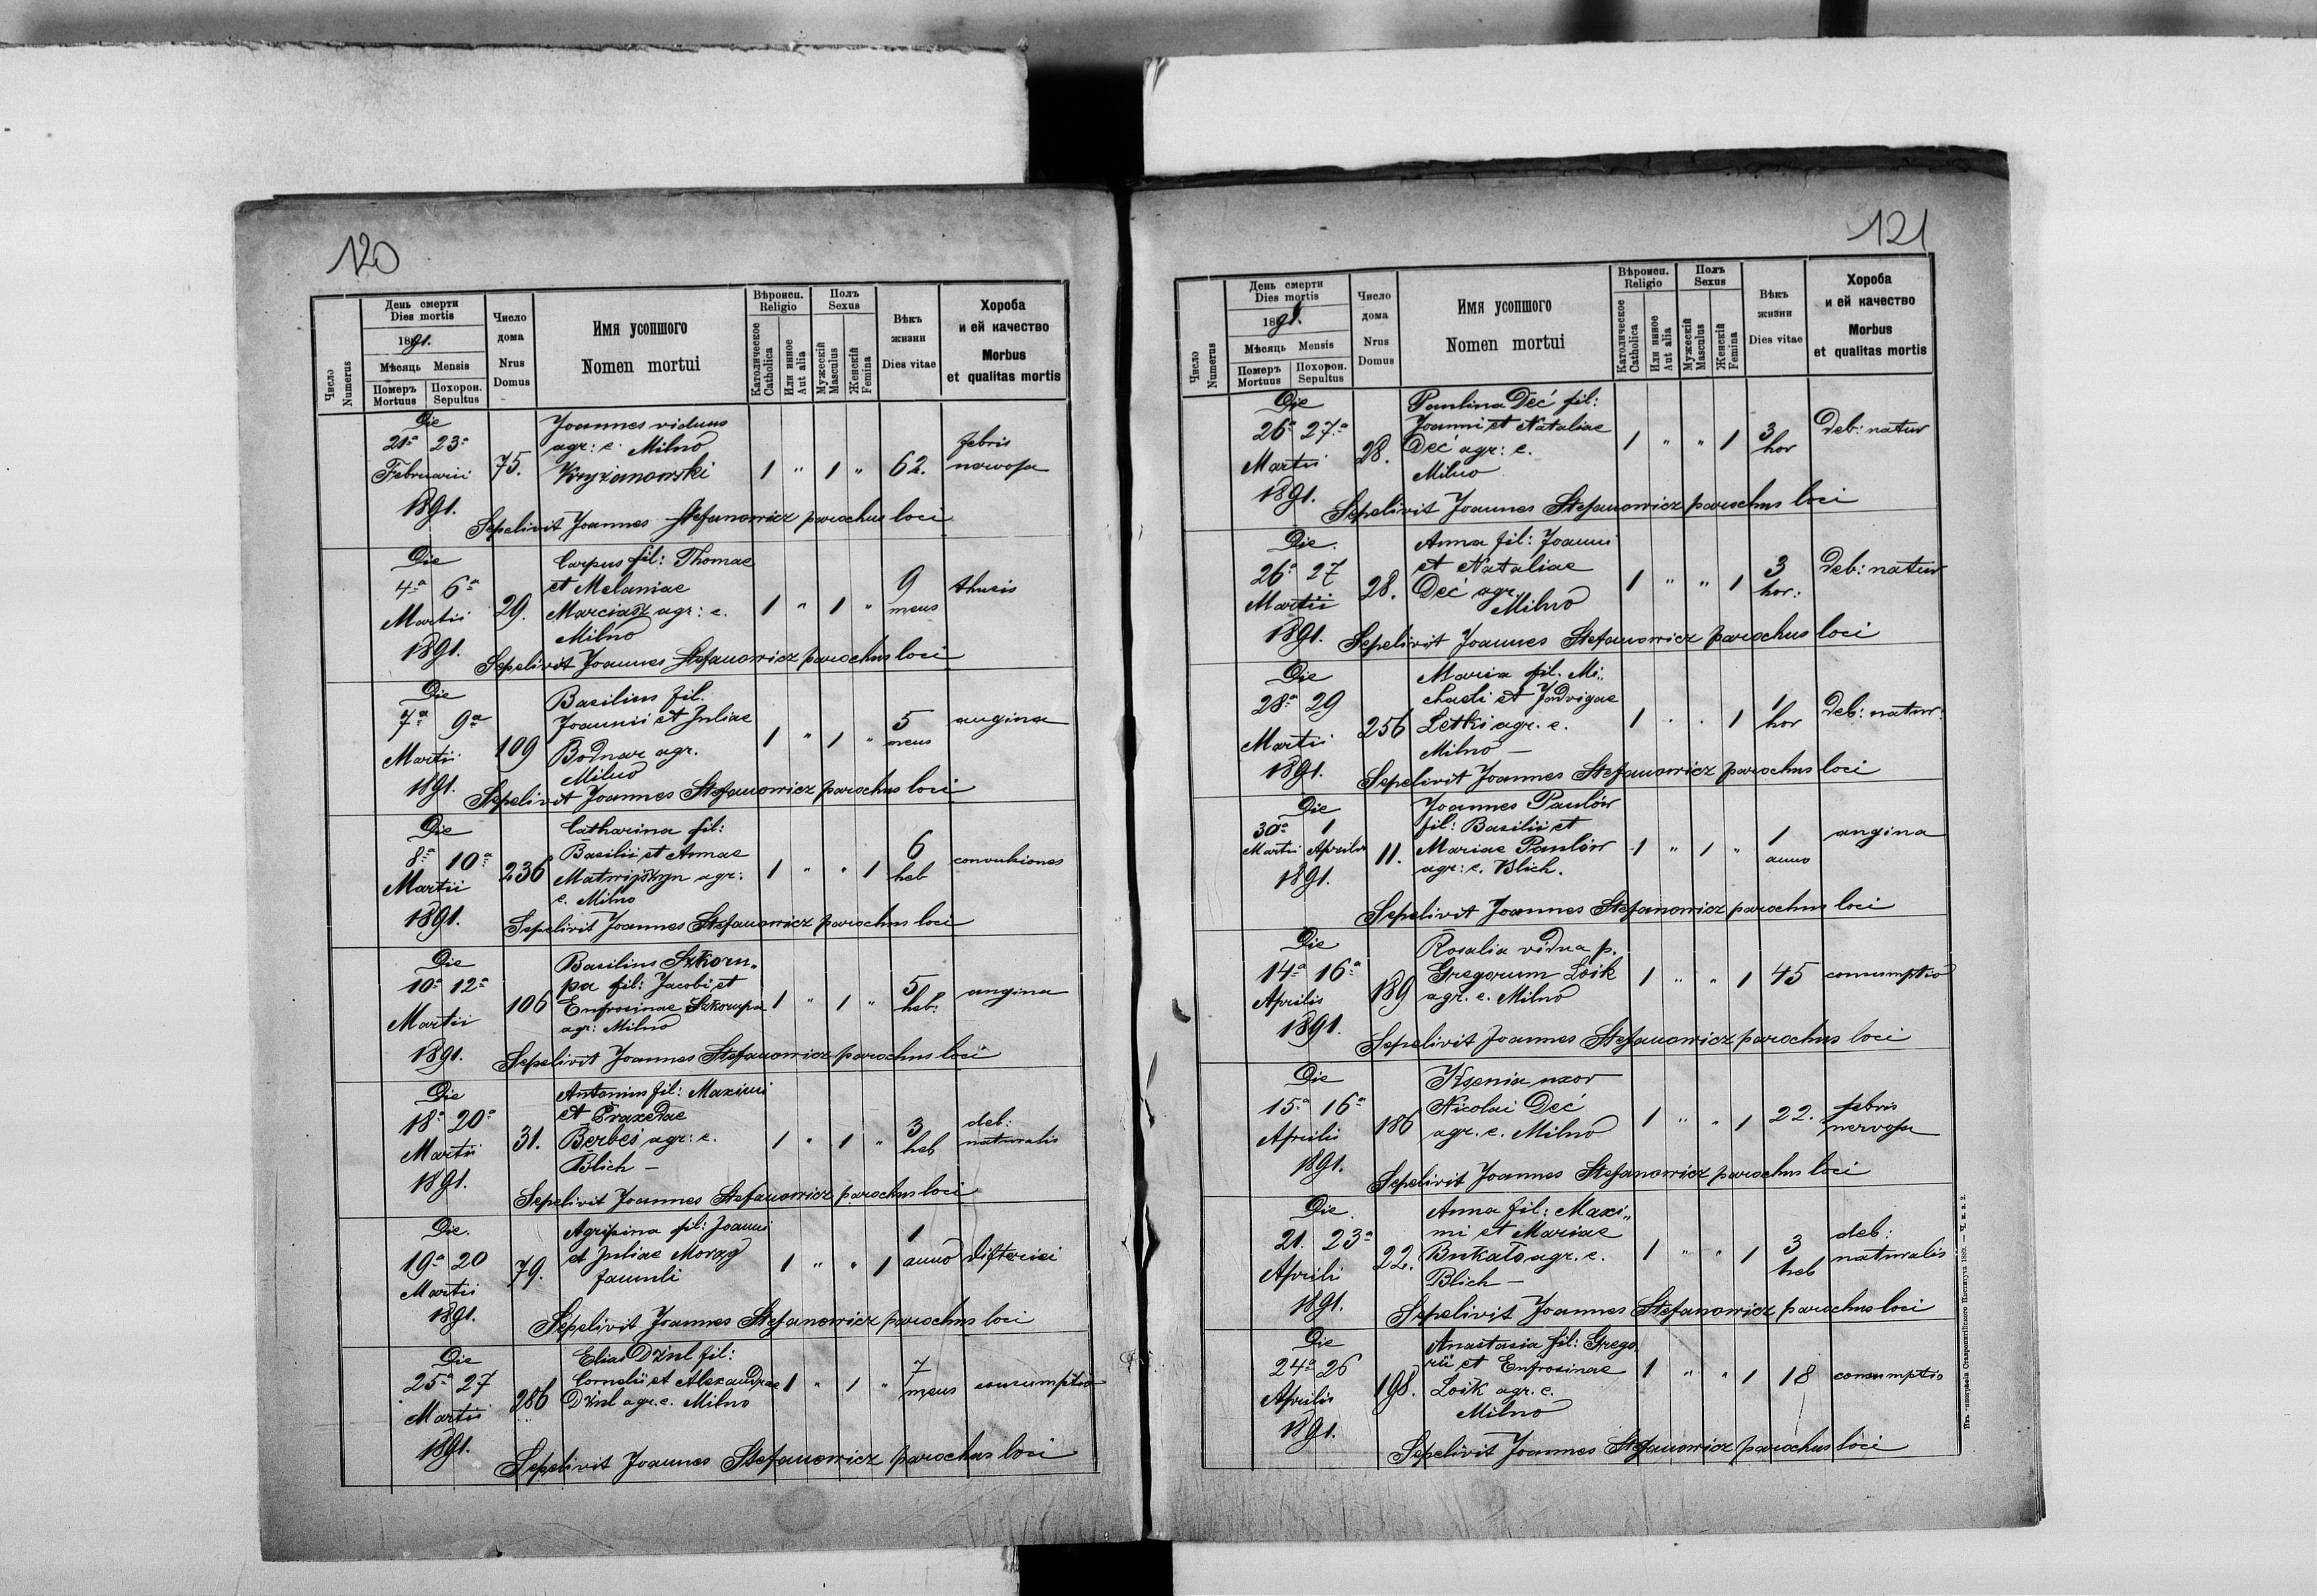 120
Число
Numerus
День смерти
Dies mortis
1891.
Мѣсяць Mensis
Померъ
Mortuus
Похорон.
Sepultus
Число
дома
Nrus
Domus
Имя усопшого
Nomen mortui
Вѣроисп.
Religio
Католическое
Catholica
Или инное
Aut alia
Полъ
Sexus
Мужескій
Masculus
Женскій
Femina
Вѣкъ
жизни
Dies vitae
Хороба
и ей качество
Morbus
et qualitas mortis
Die
21ª 23ª
Februarii
1891.
75.
Joannes viduus
agr: c. Milno
Kryżanowski
1 " 1 " 62.
febris
nervosa
Sepelivit Joannes Stefanowicz parochus loci
Die
4ª 6ª
Martii
1891.
29.
Carpus fil: Thomae
et Melaniae
Marciasz agr: c.
Milno
1 " 1 "
9
mens
thusis
Sepelivit Joannes Stefanowicz parochus loci
Die
7ª 9ª
Martii
1891.
109
Basilius fil.
Joannis et Juliae
Bodnar agr.
Milno
1 " 1 "
5
mens
angina
Sepelivit Joannes Stefanowicz parochus loci
Die
8ª 10ª
Martii
1891.
236
Catharina fil:
Basilii et Annae
agr:
c. Milno
1 " " 1
6
heb
convulsiones
Sepelivit Joannes Stefanowicz parochus loci
Die
10ª 12ª
Martii
1891.
106
Basilius Szkoru„
pa fil: Jacobi et
Eufrosinae Szkorupa
agr: Milno
1 " 1 "
5
heb:
angina
Sepelivit Joannes Stefanowicz parochus loci
Die
18ª 20ª
Martii
1891.
31.
Antonius fil: Maximi
et Praxedae
Berbeś agr: c.
Blich —
1 " 1 "
3
heb
deb:
naturalis
Sepelivit Joannes Stefanowicz parochus loci
Die.
19ª 20
Martii
1891.
79.
Agripina fil: Joanni
et Juliae
famuli
1 " " 1
1
anno
difterici
Sepelivit Joannes Stefanowicz parochus loci
Die
25ª 27
Martii
1891.
286
Elias Dżul fil:
Cornelii et Alexandrae
Dżul agr. c. Milno
1 " 1 "
7
mens
consumptio
Sepelivit Joannes Stefanowicz parochus loci
121
Число
Numerus
День смерти
Dies mortis
1891.
Мѣсяць Mensis
Померъ
Mortuus
Похорон.
Sepultus
Число
дома
Nrus
Domus
Имя усопшого
Nomen mortui
Вѣроисп.
Religio
Католическое
Catholica
Или инное
Aut alia
Полъ
Sexus
Мужескій
Masculus
Женскій
Femina
Вѣкъ
жизни
Dies vitae
Хороба
и ей качество
Morbus
et qualitas mortis
Die
26ª 27ª
Martii
1891.
28.
Paulina Deć fil:
Joanni et Nataliae
Deć agr: c.
Milno
1 " " 1
3
hor
Deb: natur
Sepelivit Joannes Stefanowicz parochus loci
Die.
26ª 27
Martii
1891.
28.
Anna fil: Joanni
et Nataliae
Deć agr.
Milno
1 " " 1
3
hor:
Deb: natur
Sepelivit Joannes Stefanowicz parochus loci
Die
28ª 29
Martii
1891.
256
Maria fil. Mi„
chaeli et Jadvigae
Letki agr. c.
Milno —
1 . . 1
1
hor
Deb: natur:
Sepelivit Joannes Stefanowicz parochus loci
Die
30ª 1
Martii Aprilis
1891.
11.
Joannes Pawlów
fil: Basilii et
Mariae Pawlów
agr: c. Blich.
1 " 1 "
1
anno
angina
Sepelivit Joannes Stefanowicz parochus loci
Die
14ª 16ª
Aprilis
1891.
189
Rosalia vidua p.
Gregorum Loik
agr. c. Milno
1 " " 1 45
consumptio
Sepelivit Joannes Stefanowicz parochus loci
Die
15ª 16ª
Aprilis
1891.
186
Ksenia uxor
Nicolai Deć
agr. c. Milno
1 " " 1 22.
febris
nervosa
Sepelivit Joannes Stefanowicz parochus loci
Die.
21. 23ª
Aprili
1891.
22.
Anna fil: Maxi„
mi et Mariae
Bukało agr. c.
Blich —
1 " " 1
3
heb
deb:
naturalis
Sepelivit Joannes Stefanowicz parochus loci
Die
24ª 26
Aprilis
1891.
198.
Anastasia fil: Grego
rii et Eufrosinae
Loik agr. c.
Milno
1 " " 1 18
consumptio
Sepelivit Joannes Stefanowicz parochus loci
Ставропигійского Института 1889. — Ч. к. з. 2.